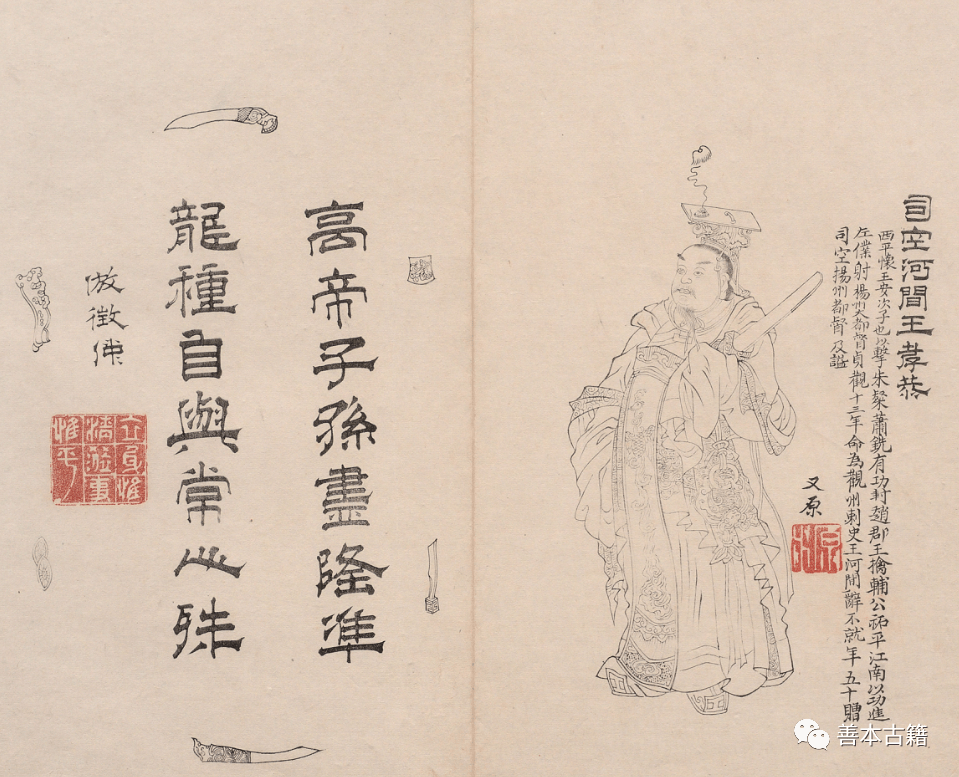 司空河間王孝恭
西平懷王安次子也以擊朱粲蕭銑有功封趙郡王擒輔公祏平江南以功進
左僕射楊州大都督貞觀十三年命為觀州刺史王河間辭不就年五十贈
司空揚州都督及諡
又原
高帝子孫盡隆準
龍種自與常人殊
倣徵仲
立身惟
清涖事
惟平
善本古籍